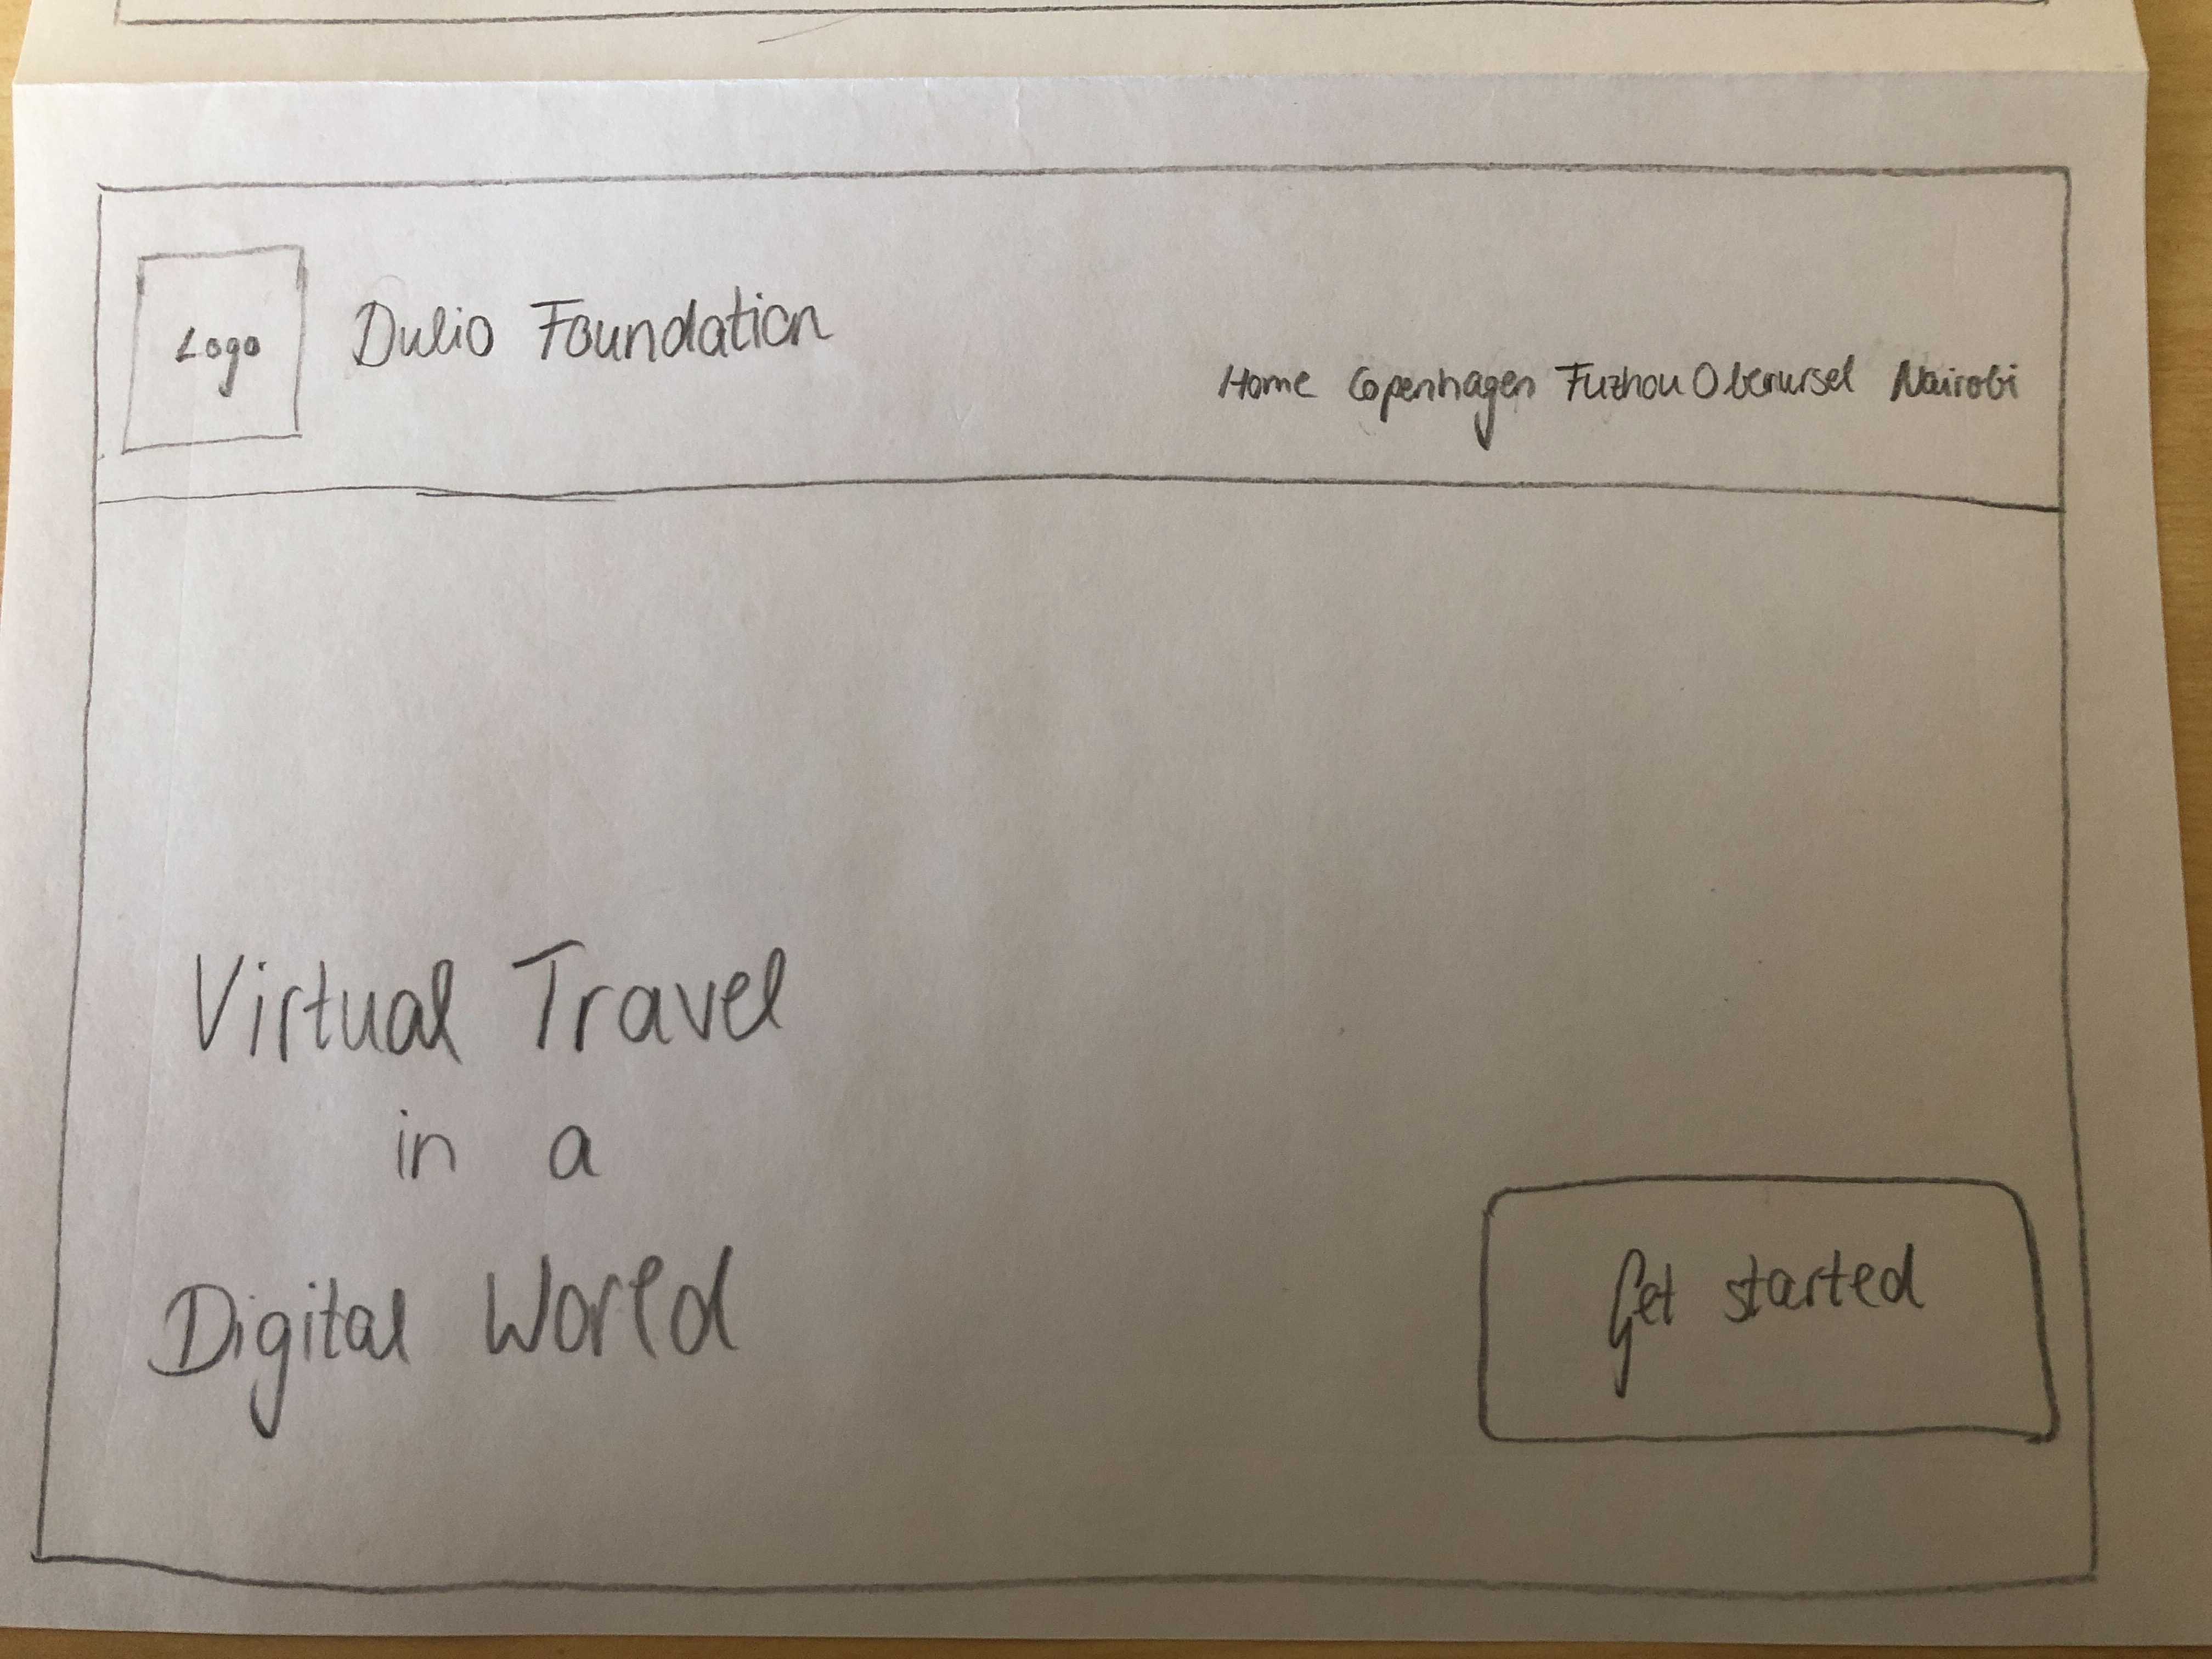 Logo
Dulio Foundation
Home Copenhagen Fuzhou Oberursel Nairobi
Virtual Travel
in a
Digital World
Get started